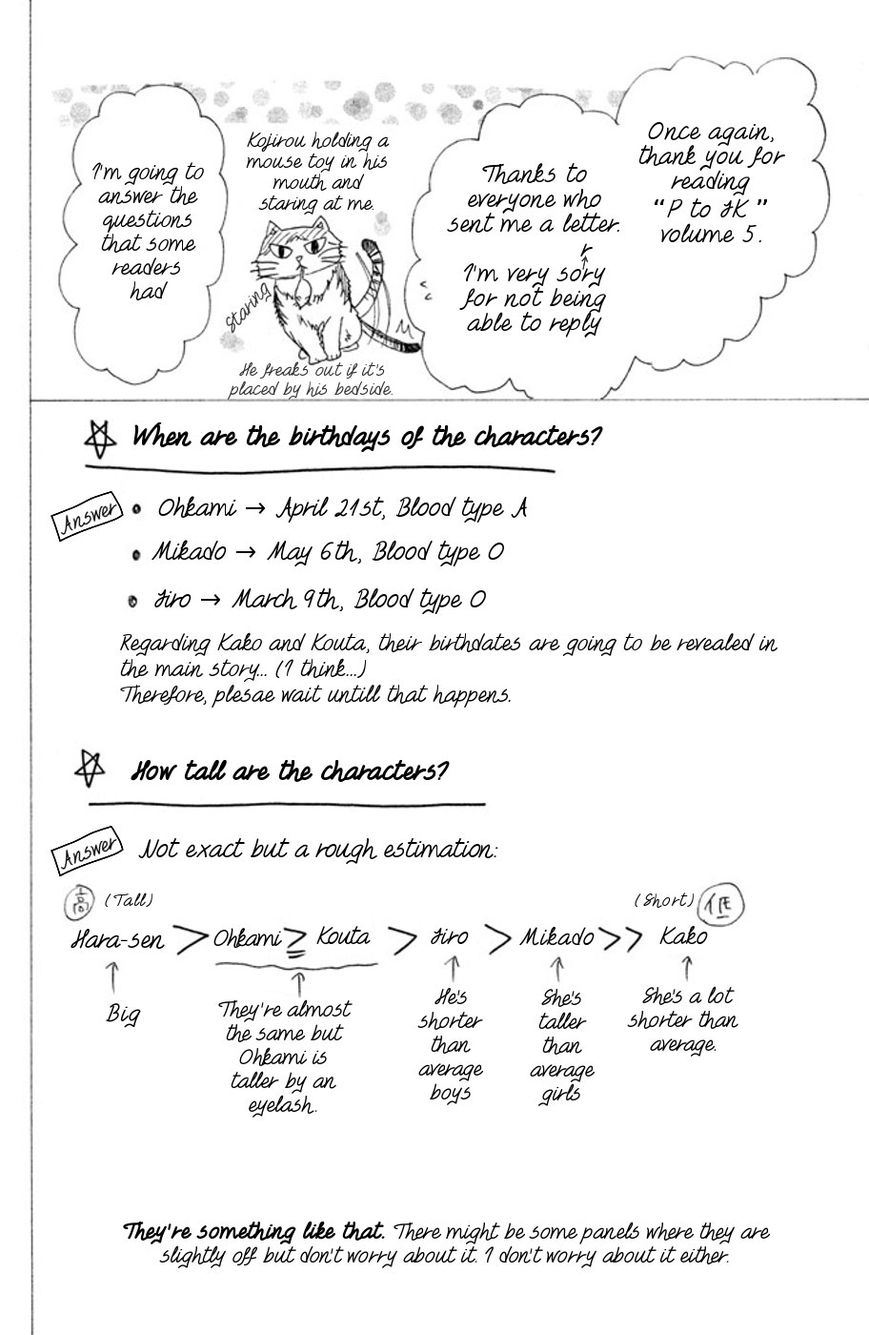 Once again,
thank you for
reading
“P to JK”
volume 5.
Thanks to
everyone who
sent me a letter.
r
↑
I'm very sory
for not being
able to reply
Kojirou holding a
mouse toy in his
mouth and
staring at me.
staring
He freaks out if it's
placed by his bedside.
I'm going to
answer the
questions
that some
readers
had
When are the birthdays of the characters?
Answer
• Ohkami → April 21st, Blood type A
• Mikado → May 6th, Blood type O
• Jiro → March 9th, Blood type O
Regarding Kako and Kouta, their birthdates are going to be revealed in
the main story... (I think...)
Therefore, plesae wait untill that happens.
How tall are the characters?
Answer
Not exact but a rough estimation:
高 (Tall)
(Short) 低
Hara-sen > Ohkami ≧ Kouta > Jiro > Mikado >> Kako
Big
They're almost
the same but
Ohkami is
taller by an
eyelash.
He's
shorter
than
average
boys
She's
taller
than
average
girls
She's a lot
shorter than
average.
They're something like that. There might be some panels where they are
slightly off but don't worry about it. I don't worry about it either.